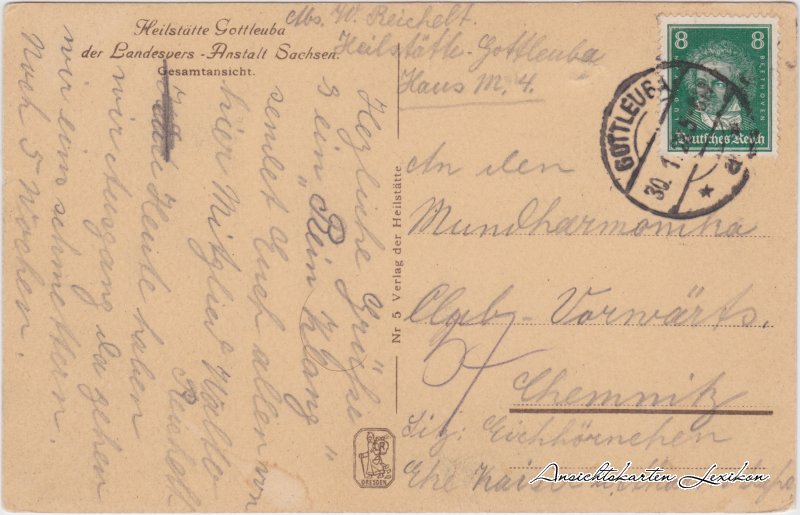 Heilstätte Gottleuba
der Landesvers.-Anstalt Sachsen.
Gesamtansicht.
Abs. W. Reichelt.
Heilstätte-Gottleuba
Haus M. 4.
8 8
BEETHOVEN
Deutsches Reich
GOTTLEUBA
30.1.
An den
Mundharmonika
Club-Vorwärts,
Chemnitz
Sig: Eichhörnchen
Nr 5 Verlag der Heilstätte
DRESDEN
Hezliche Grüße
& ein „Rein Klang"
semdet Euch allen von
hier Mitglied Walter
Reichelt
Heute haben
wir Ausgang da gehen
wir eins schmettern.
Noch 5 Wochen.
Ansichtskarten Lexikon